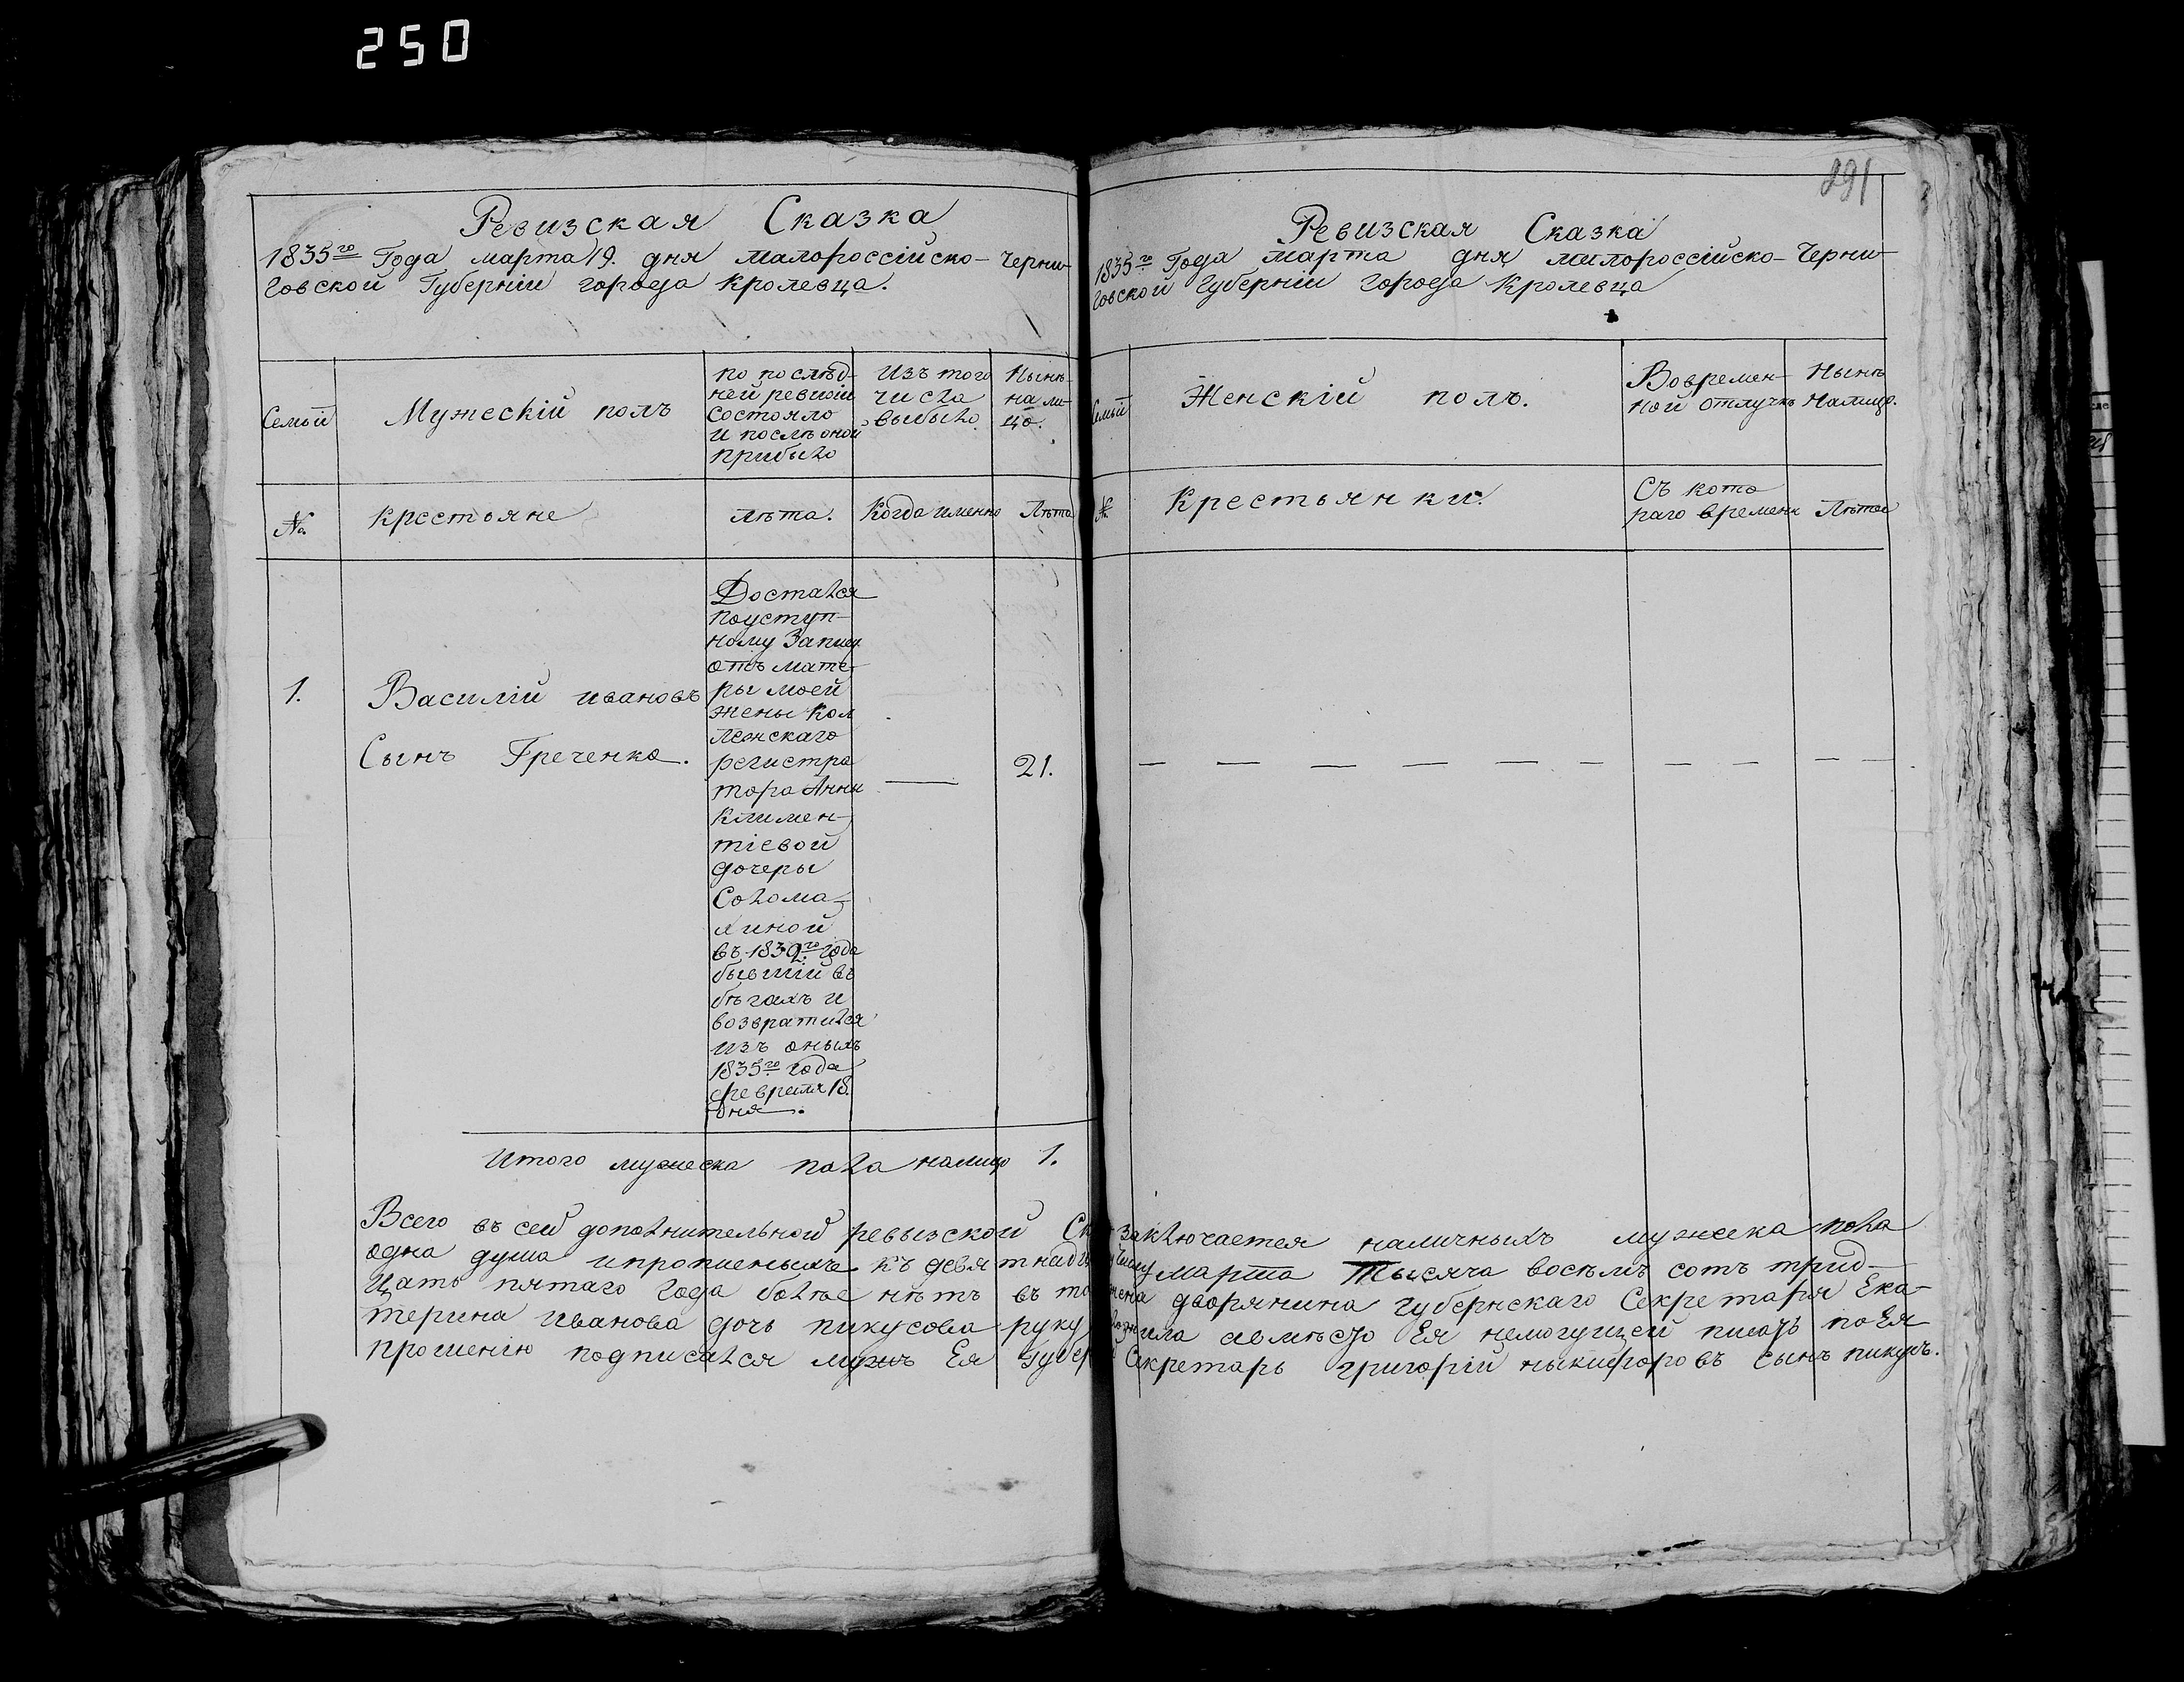 250
291
Ревизская Сказка
1835го Года марта 19. дня малороссійско-Черни-
говской Губерніи города Кролевца.
Семьи
Мужескій полъ
по послѣд-
ней ревизіи
состояло
и послѣ оной
прибыло
Изъ того
числа
выбыло
Нынѣ
на ли-
цо.
№
крестьяне
лѣта.
Когда именно
Лѣта
1.
Василій ивановъ
Сынъ Греченко.
Достался
поуступ-
ному Запису
отъ мате-
ры моей
жены Кол
лежскаго
регистра
тора Анны
Климен-
тіевой
дочеры
Солома-
хиной
въ 1832го года
бывшій въ
бѣгахъ и
возвратился
изъ оныхъ
1835го года
февраля 18.
дня.
21.
Итого мужеска пола налицо 1.
Ревизская Сказка
1835го Года марта дня малороссійско-Черни-
говской Губерніи города Кролевца
Семьи
Женскій полъ.
Вовремен-
ной отлучкѣ
Нынѣ
Налицо.
№
Крестьянки.
Съ кото
раго времени
Лѣта
Всего въ сей дополнительной ревызской заключается наличныхъ мужеска пола
одна душа ипропиеныхъ къ марта Тысяча восѣмъ сотъ трид-
цать пятаго года болѣе нѣтъ въ дворянина губернскаго Секретаря Ека-
терина иванова дочь пикусова руку авмѣсто Ея немогущей писать поЕя
прошенію подписался мужъ Ея Секретарь григорій ныкифоровъ сынъ пикусъ.